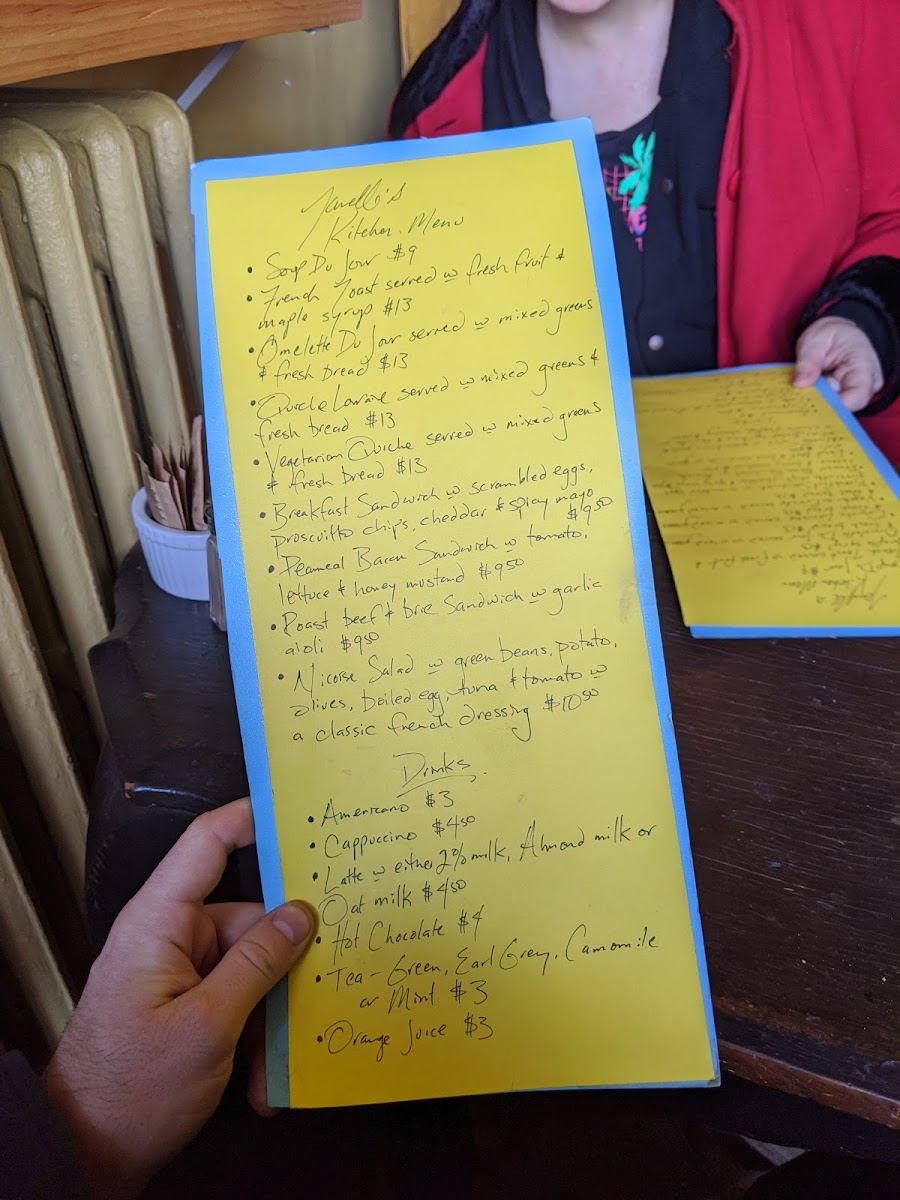 Janelle's
Kitchen Menu
• Soup Du Jour $9
• French Toast served w fresh fruit &
maple syrup $13
• Omelette Du Jour served w mixed greens
& fresh bread $13
• Quiche Loraine served w mixed greens &
fresh bread $13
• Vegetarian Quiche served w mixed greens
& fresh bread $13
• Breakfast Sandwich w scrambled eggs,
proscuitto chips, cheddar & spicy mayo
$9.50
• Peameal Bacon Sandwich w tomato,
lettuce & honey mustand $9.50
• Roast beef & brie Sandwich w garlic
aioli $9.50
• Nicoise Salad w green beans, potato,
olives, boiled egg, tuna & tomato w
a classic french dressing $10.50
Drinks
• Americano $3
• Cappuccino $4.50
• Latte w either 2% milk, Almond milk or
Oat milk $4.50
• Hot Chocolate $4
• Tea - Green, Earl Grey, Camomile
or Mint $3
• Orange Juice $3